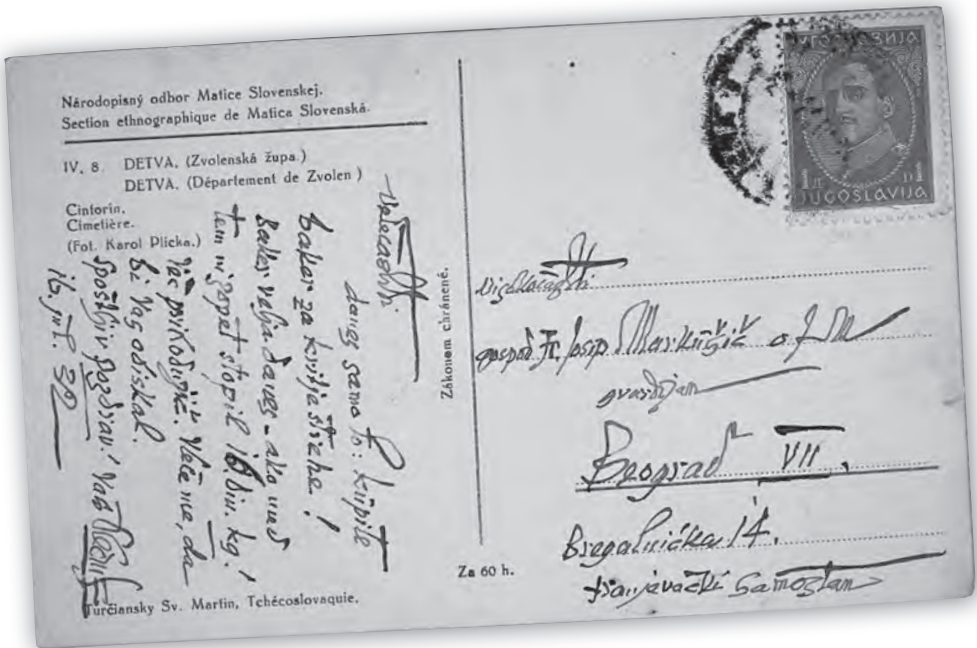 Národopisný odbor Matice Slovenskej.
Section ethnographique de Matica Slovenská.
IV. 8. DETVA. (Zvolenská župa.)
DETVA. (Département de Zvolen)
Cintorín.
Cimetière.
(Fot. Karol Plicka.)
danes samo to: kupite
baker za kritje strehe!
Baker velja danes - ako
stopil 16 din. kg.!
Več da
bi Vas obiskal.
Spoštljiv pozdrav! Vaš
16. 32
Turčiansky Sv. Martin, Tchécoslovaquie.
Zákonom chránené.
Za 60 h.
ЈУГОСЛАВИЈА
1 Д D 1
JUGOSLAVIJA
gospod fr. Josip Markušić
gvardijan
Beograd VII.
Bregalnička 14.
Samostan